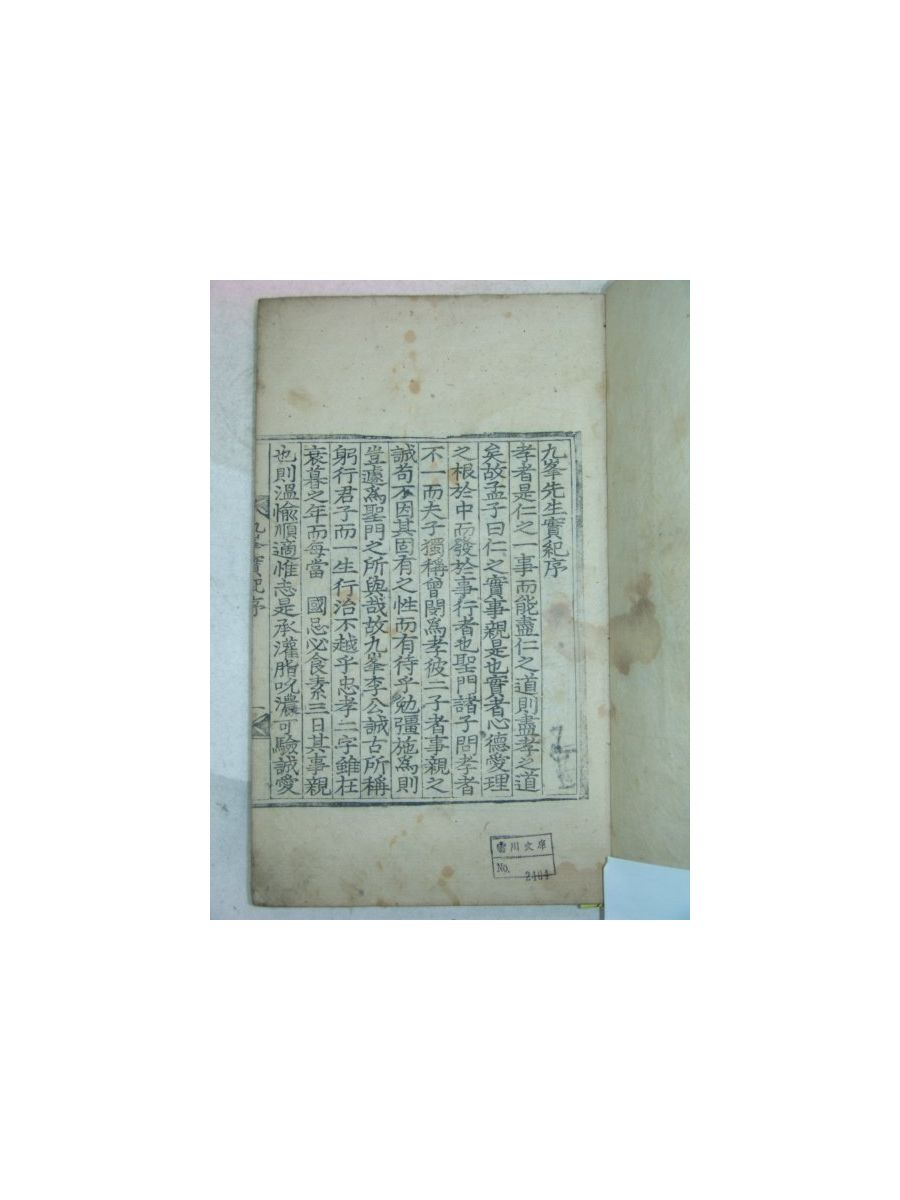 九峯先生實紀序
孝者是仁之一事而能盡仁之道則盡孝之道
矣故孟子曰仁之實事親是也實者心德愛理
之根於中而發於事行者也聖門諸子問孝者
不一而夫子獨稱曾閔爲孝彼二子者事親之
誠苟不因其固有之性而有待乎勉彊施爲則
豈遽爲聖門之所與哉故九峯李公誠古所稱
躬行君子而一生行治不越乎忠孝二字雖在
衰暮之年而每當 國忌必食素三日其事親
也則溫愉順適惟志是承瀡脂吮濃可驗誠愛
九峯實紀序
一
川文庫
No. 2404